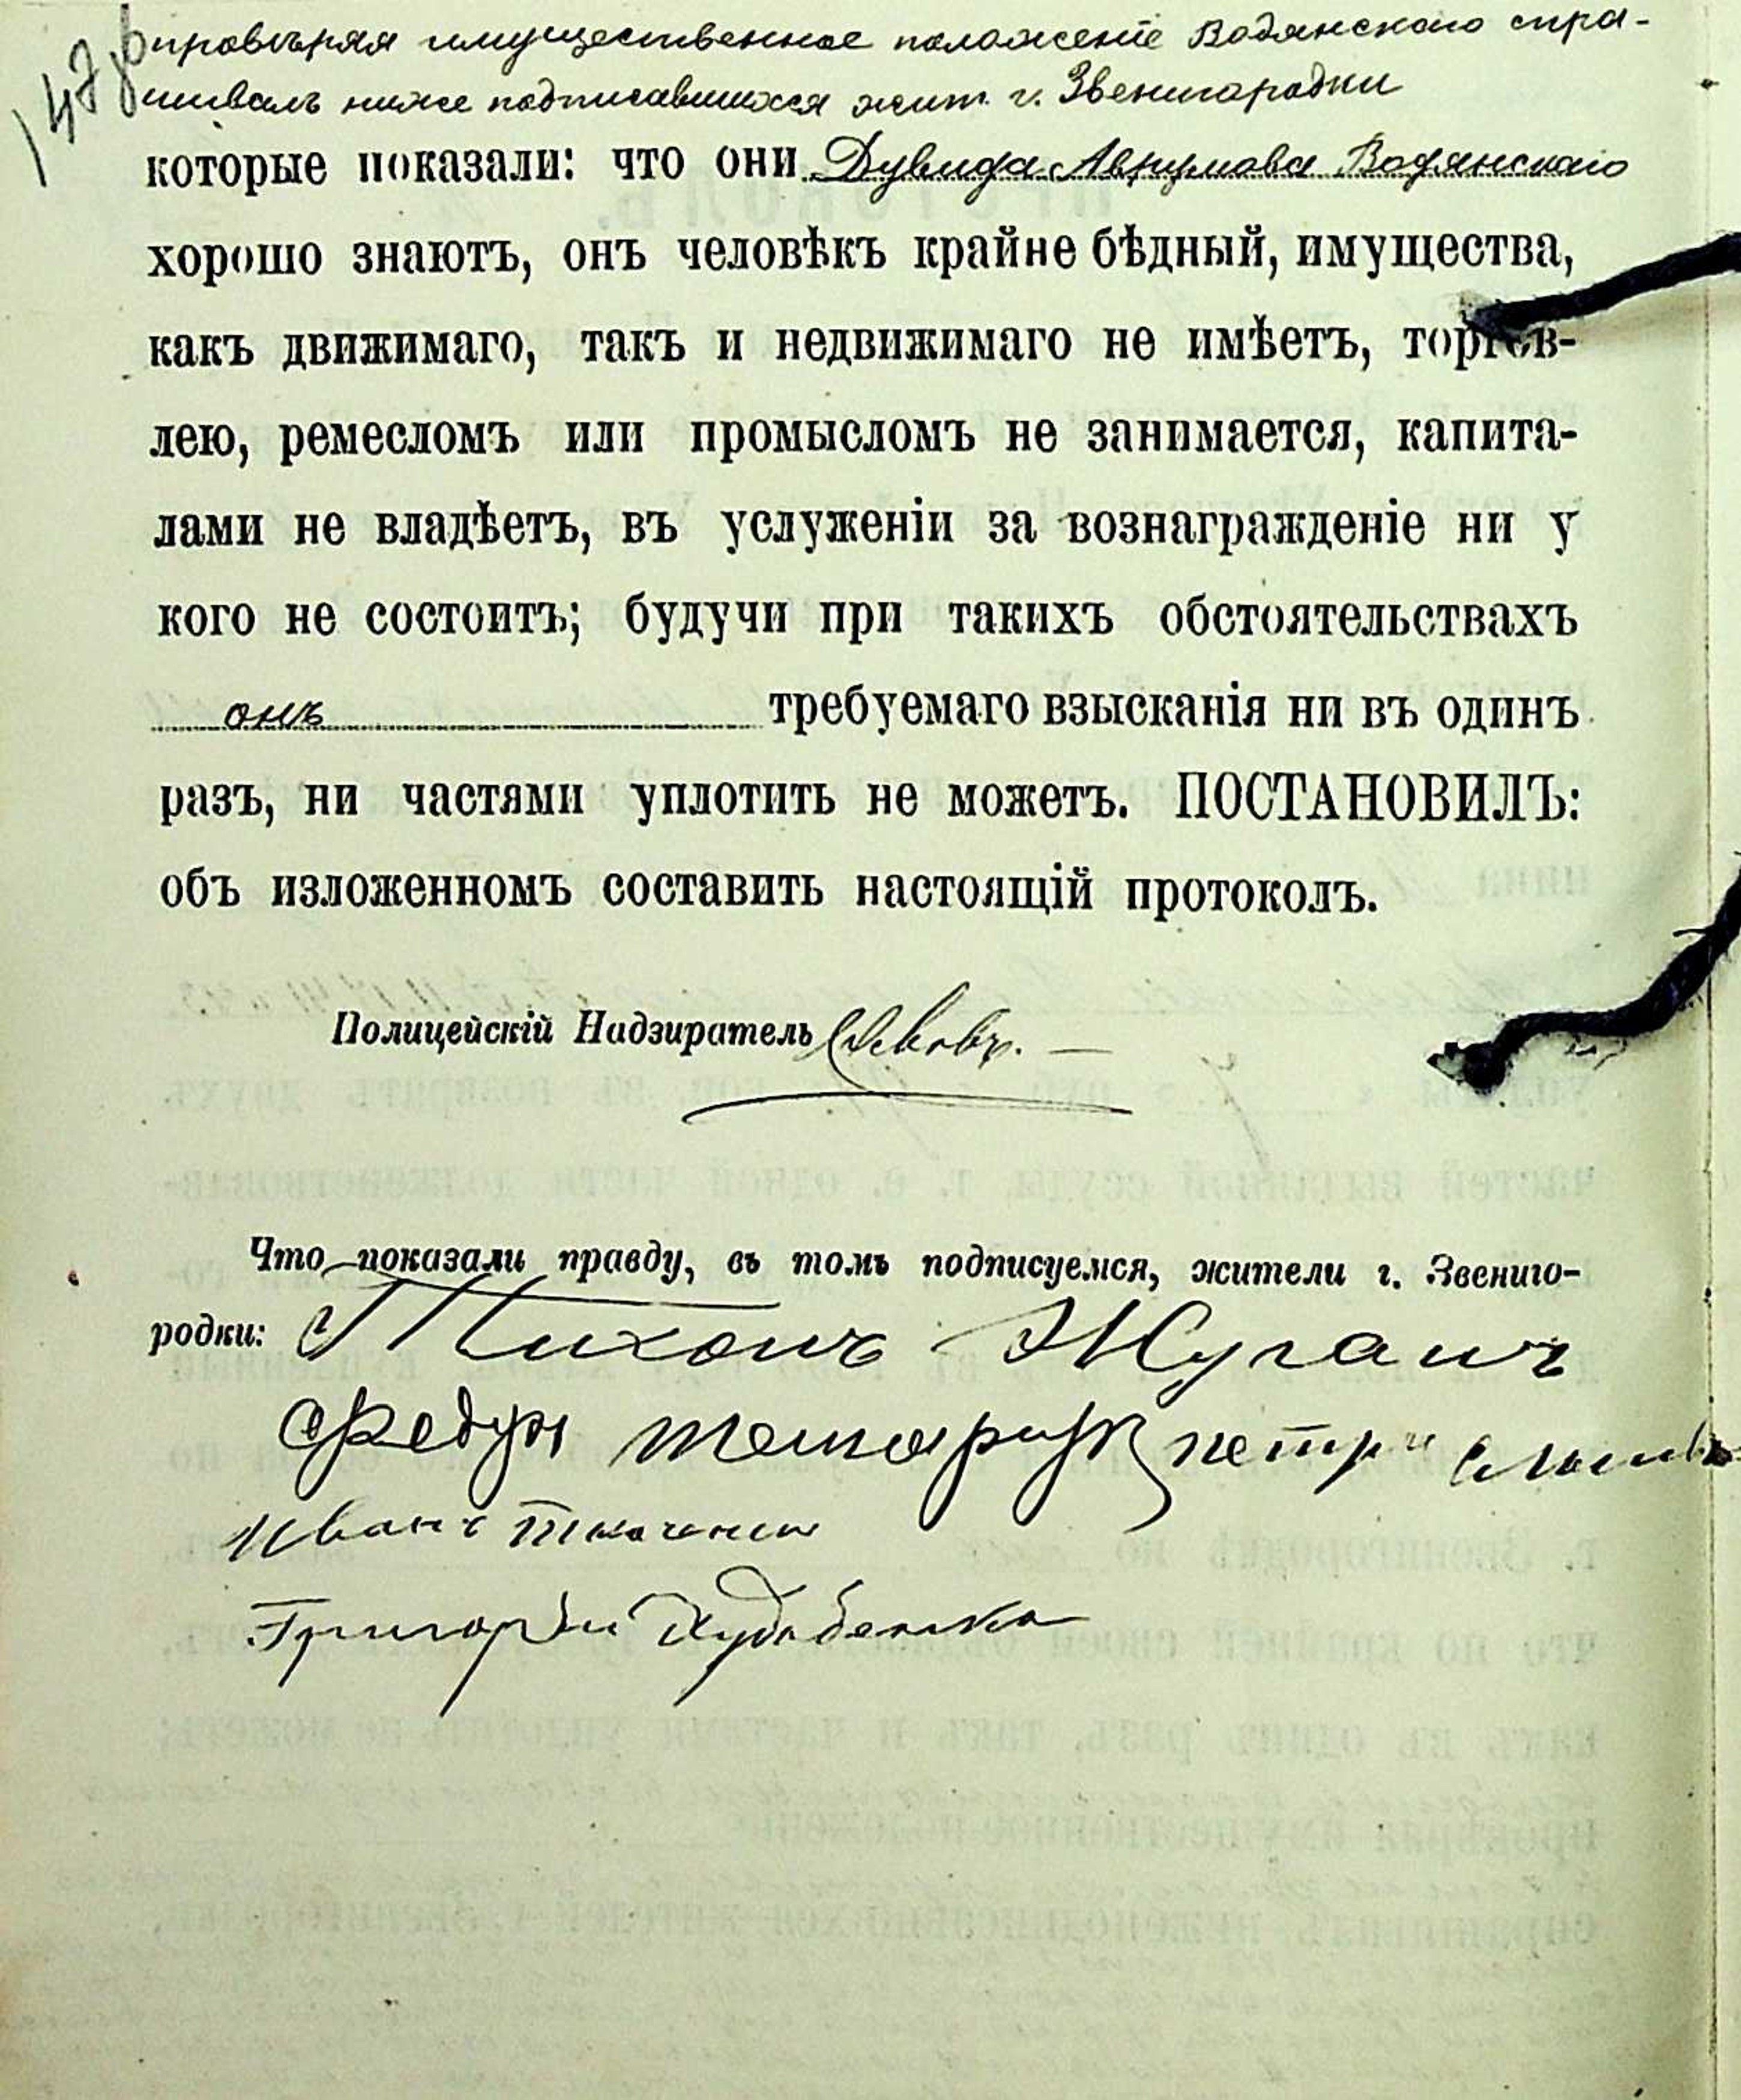 147
провѣряя имущественное положеніе Водянскаго спра-
шивалъ ниже подписавшихся жит. г. Звенигородки
которые показали: что они Дувида Аврумова Водянскаго
хорошо знаютъ, онъ человѣкъ крайне бѣдный, имущества,
какъ движимаго, такъ и недвижимаго не имѣетъ, торгов-
лею, ремесломъ или промысломъ не занимается, капита-
лами не владѣетъ, въ услуженіи за вознагражденіе ни у
кого не состоитъ; будучи при такихъ обстоятельствахъ
онъ требуемаго взысканія ни въ одинъ
разъ, ни частями уплотить не можетъ. ПОСТАНОВИЛЪ:
объ изложенномъ составить настоящій протоколъ.
Полицейскій Надзиратель
Что показали правду, въ томъ подписуемся, жители г. Звениго-
родки: Тихонъ Жуганъ
Иванъ Ткаченко
Григорій Худобенко